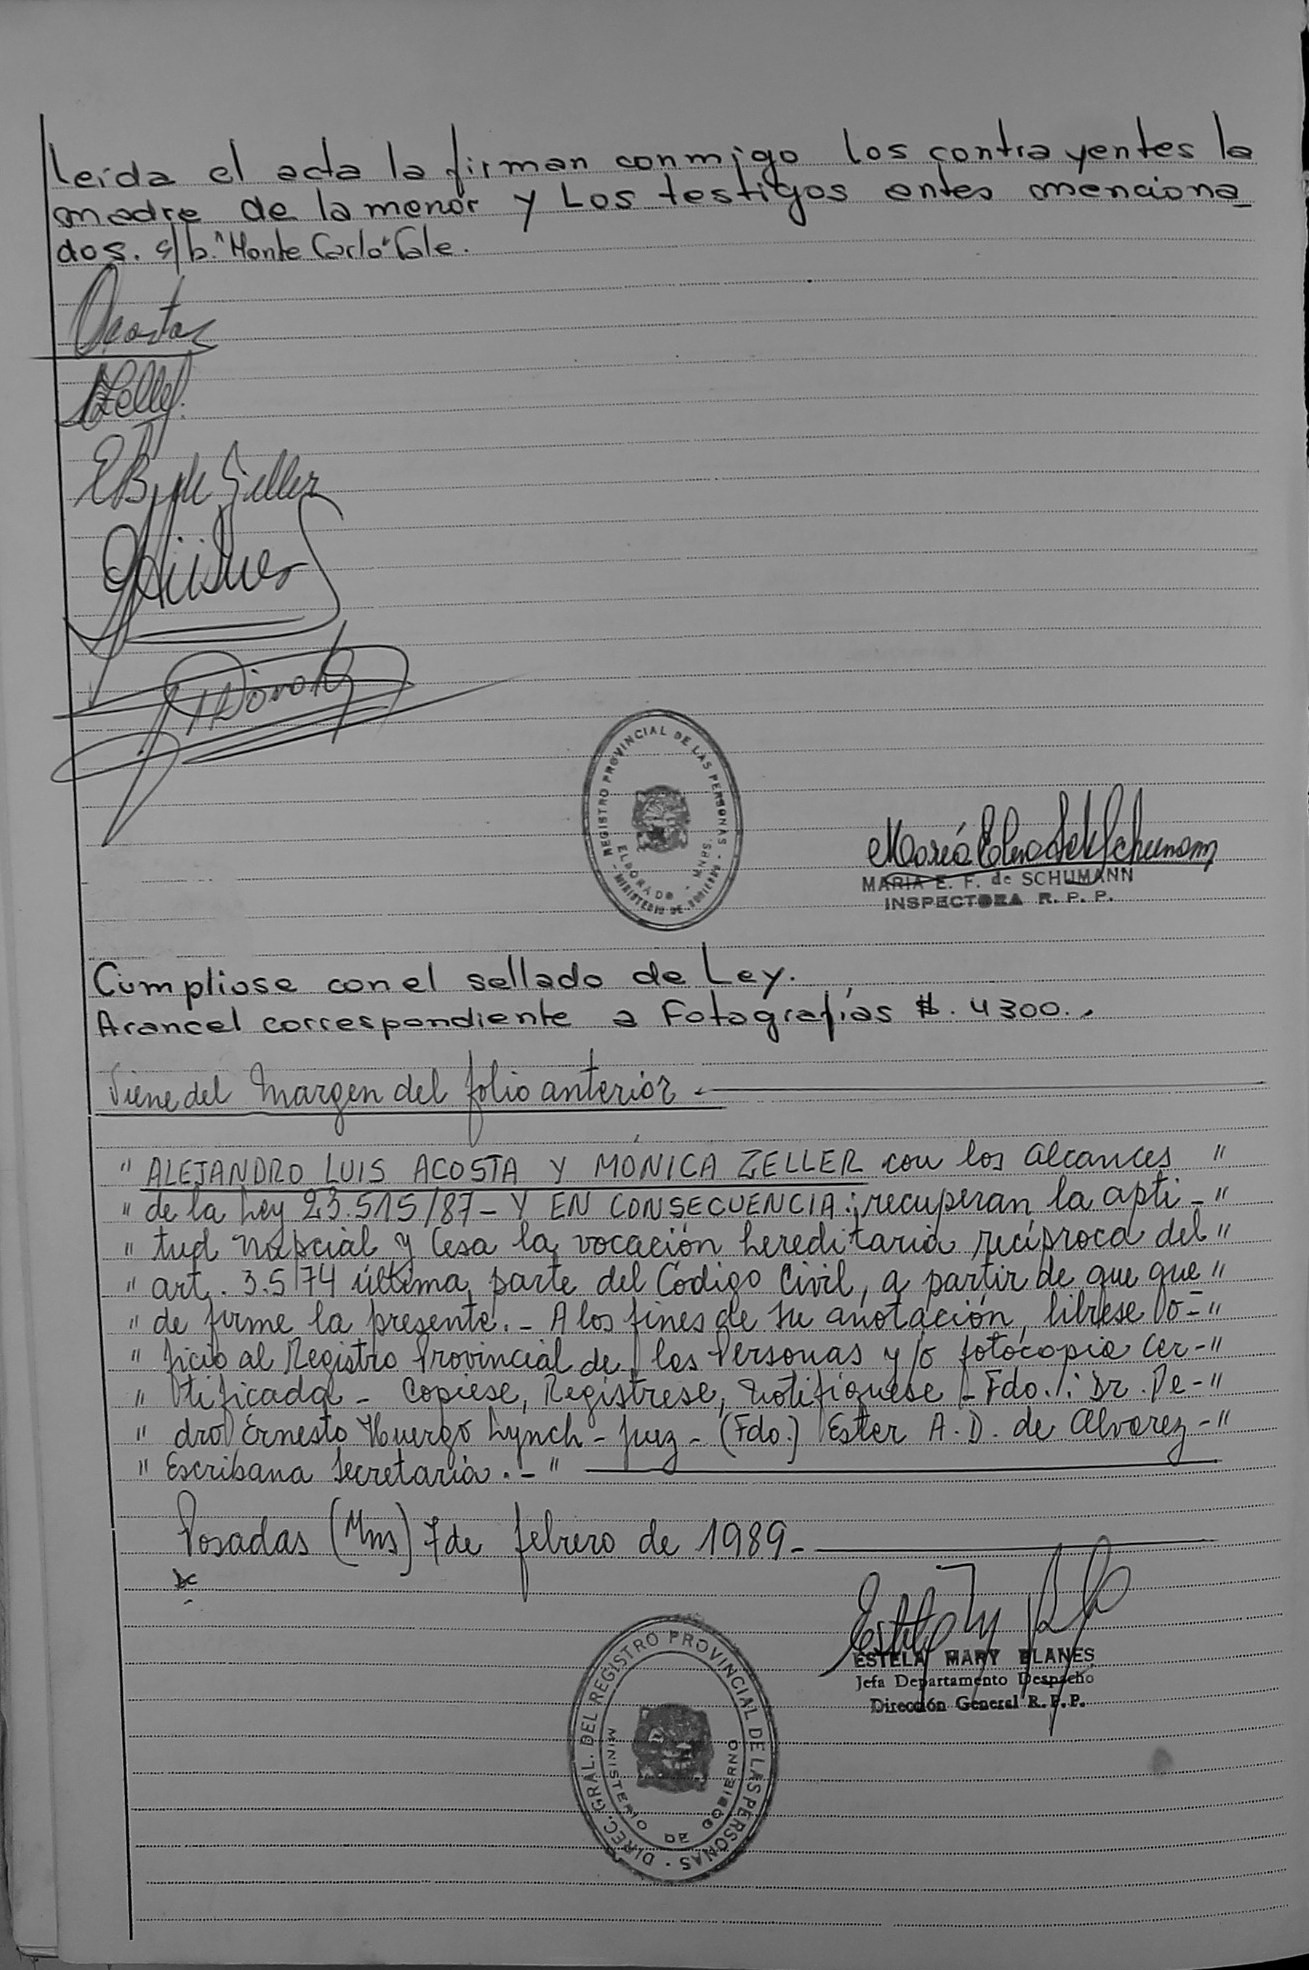 leída el acta la firman conmigo los contrayentes la
madre de la menor y Los testigos antes menciona_
dos. s/b. "Monte Carlo" Vale.
Acosta
Zeller
E B de Zeller
REGISTRO PROVINCIAL DE LAS PERSONAS
ELDORADO - MNES.
MINISTERIO DE GOBIERNO
MARIA E. F. de SCHUMANN
INSPECTORA R. P. P.
Cumpliose con el sellado de Ley.
Arancel correspondiente a Fotografías $. 4300..
Viene del Margen del folio anterior.-
" ALEJANDRO LUIS ACOSTA Y MÓNICA ZELLER con los alcances "
" de la Ley 23.515/87 - Y EN CONSECUENCIA: recuperan la apti- "
" tud nupcial y cesa la vocación hereditaria recíproca del "
" art. 3.574 última parte del Código Civil, a partir de que que "
" de firme la presente.- A los fines de su anotación, líbrese o- "
" ficio al Registro Provincial de las Personas y/o fotocopia cer- "
" tificada - Copiese, Regístrese, Notifíquese - Fdo.: Dr. Pe- "
" dro Ernesto Huergo Lynch - juez - (Fdo.) Ester A. D. de Alvarez - "
" Escribana Secretaria.- "
Posadas (Mns) 7 de febrero de 1989.-
ESTELA MARY BLANES
Jefa Departamento Despacho
Dirección General R. P. P.
DIREC. GRAL. DEL REGISTRO PROVINCIAL DE LAS PERSONAS
MINISTERIO DE GOBIERNO